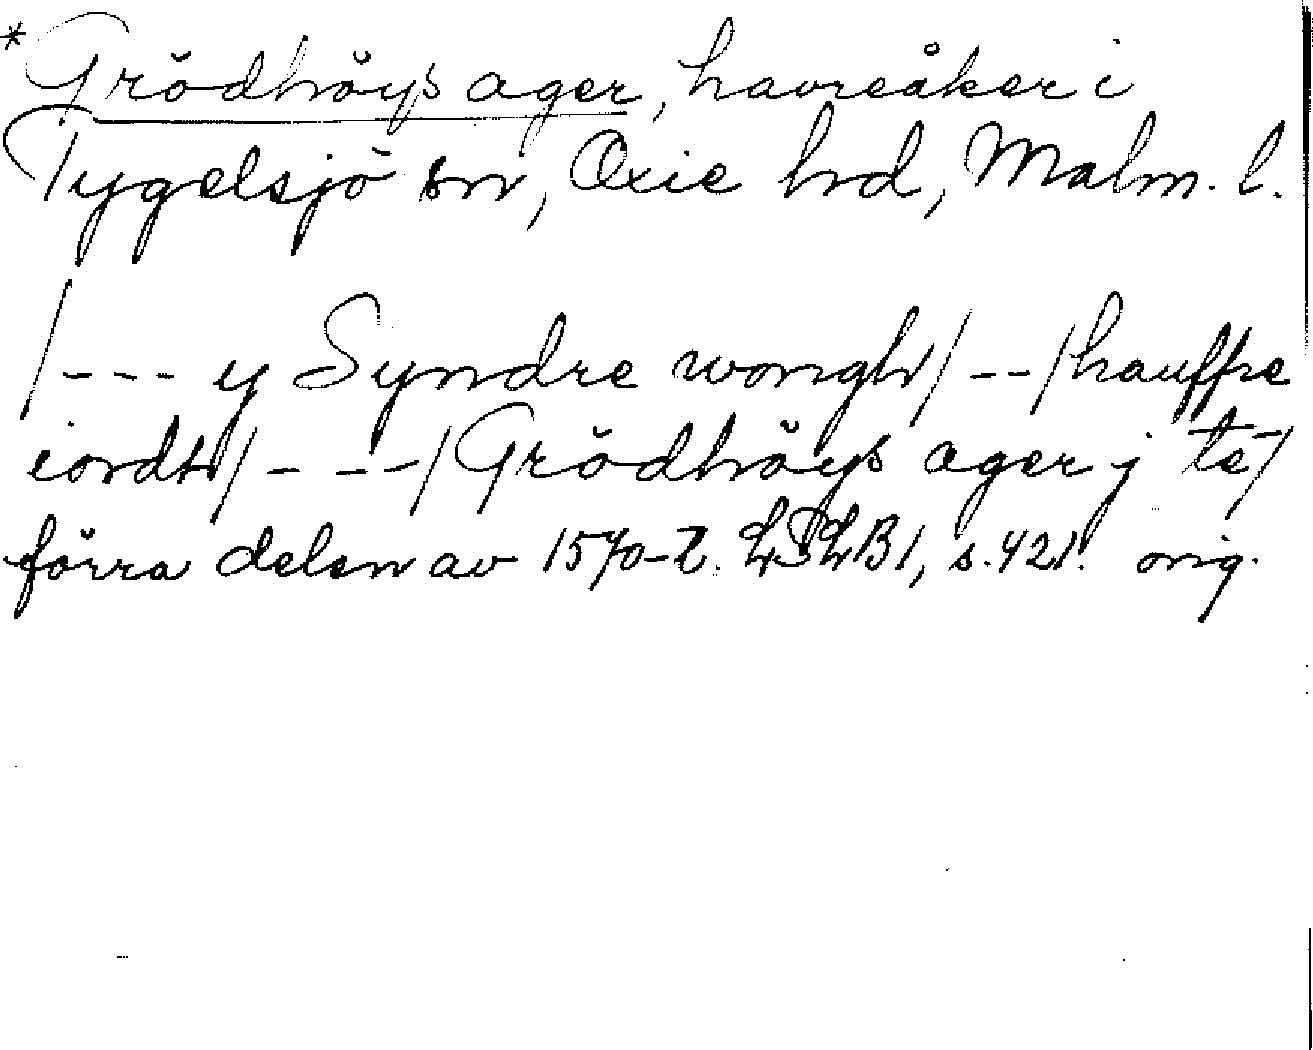 *Grödhöys ager, havreåker i
Tygelsjö sn, Oxie hd, Malm. l.
/--- y Syndre wongh/ -- /hauffre
iordt/ - -- /Grödhöys ager j te/
förra delen av 1570-t. LPLB1, s. 421. orig.